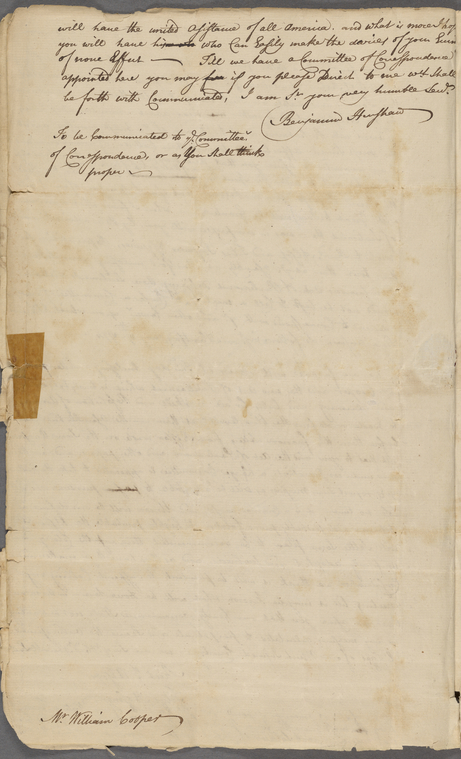 will have the united Assistance of all America. and what is more I hope
you will have him who Can Easily make the devices of your Enem
of none Effect — Till we have a Committee of Correspondence
appointed here you may if you please direct to me wch Shall
be forth with Communicated, I am Sr. your very humble Servt.
Benjamin Henshaw
To be Communicated to ye. Committee
of Correspondence, or as You Shall think
proper
Mr. William Cooper